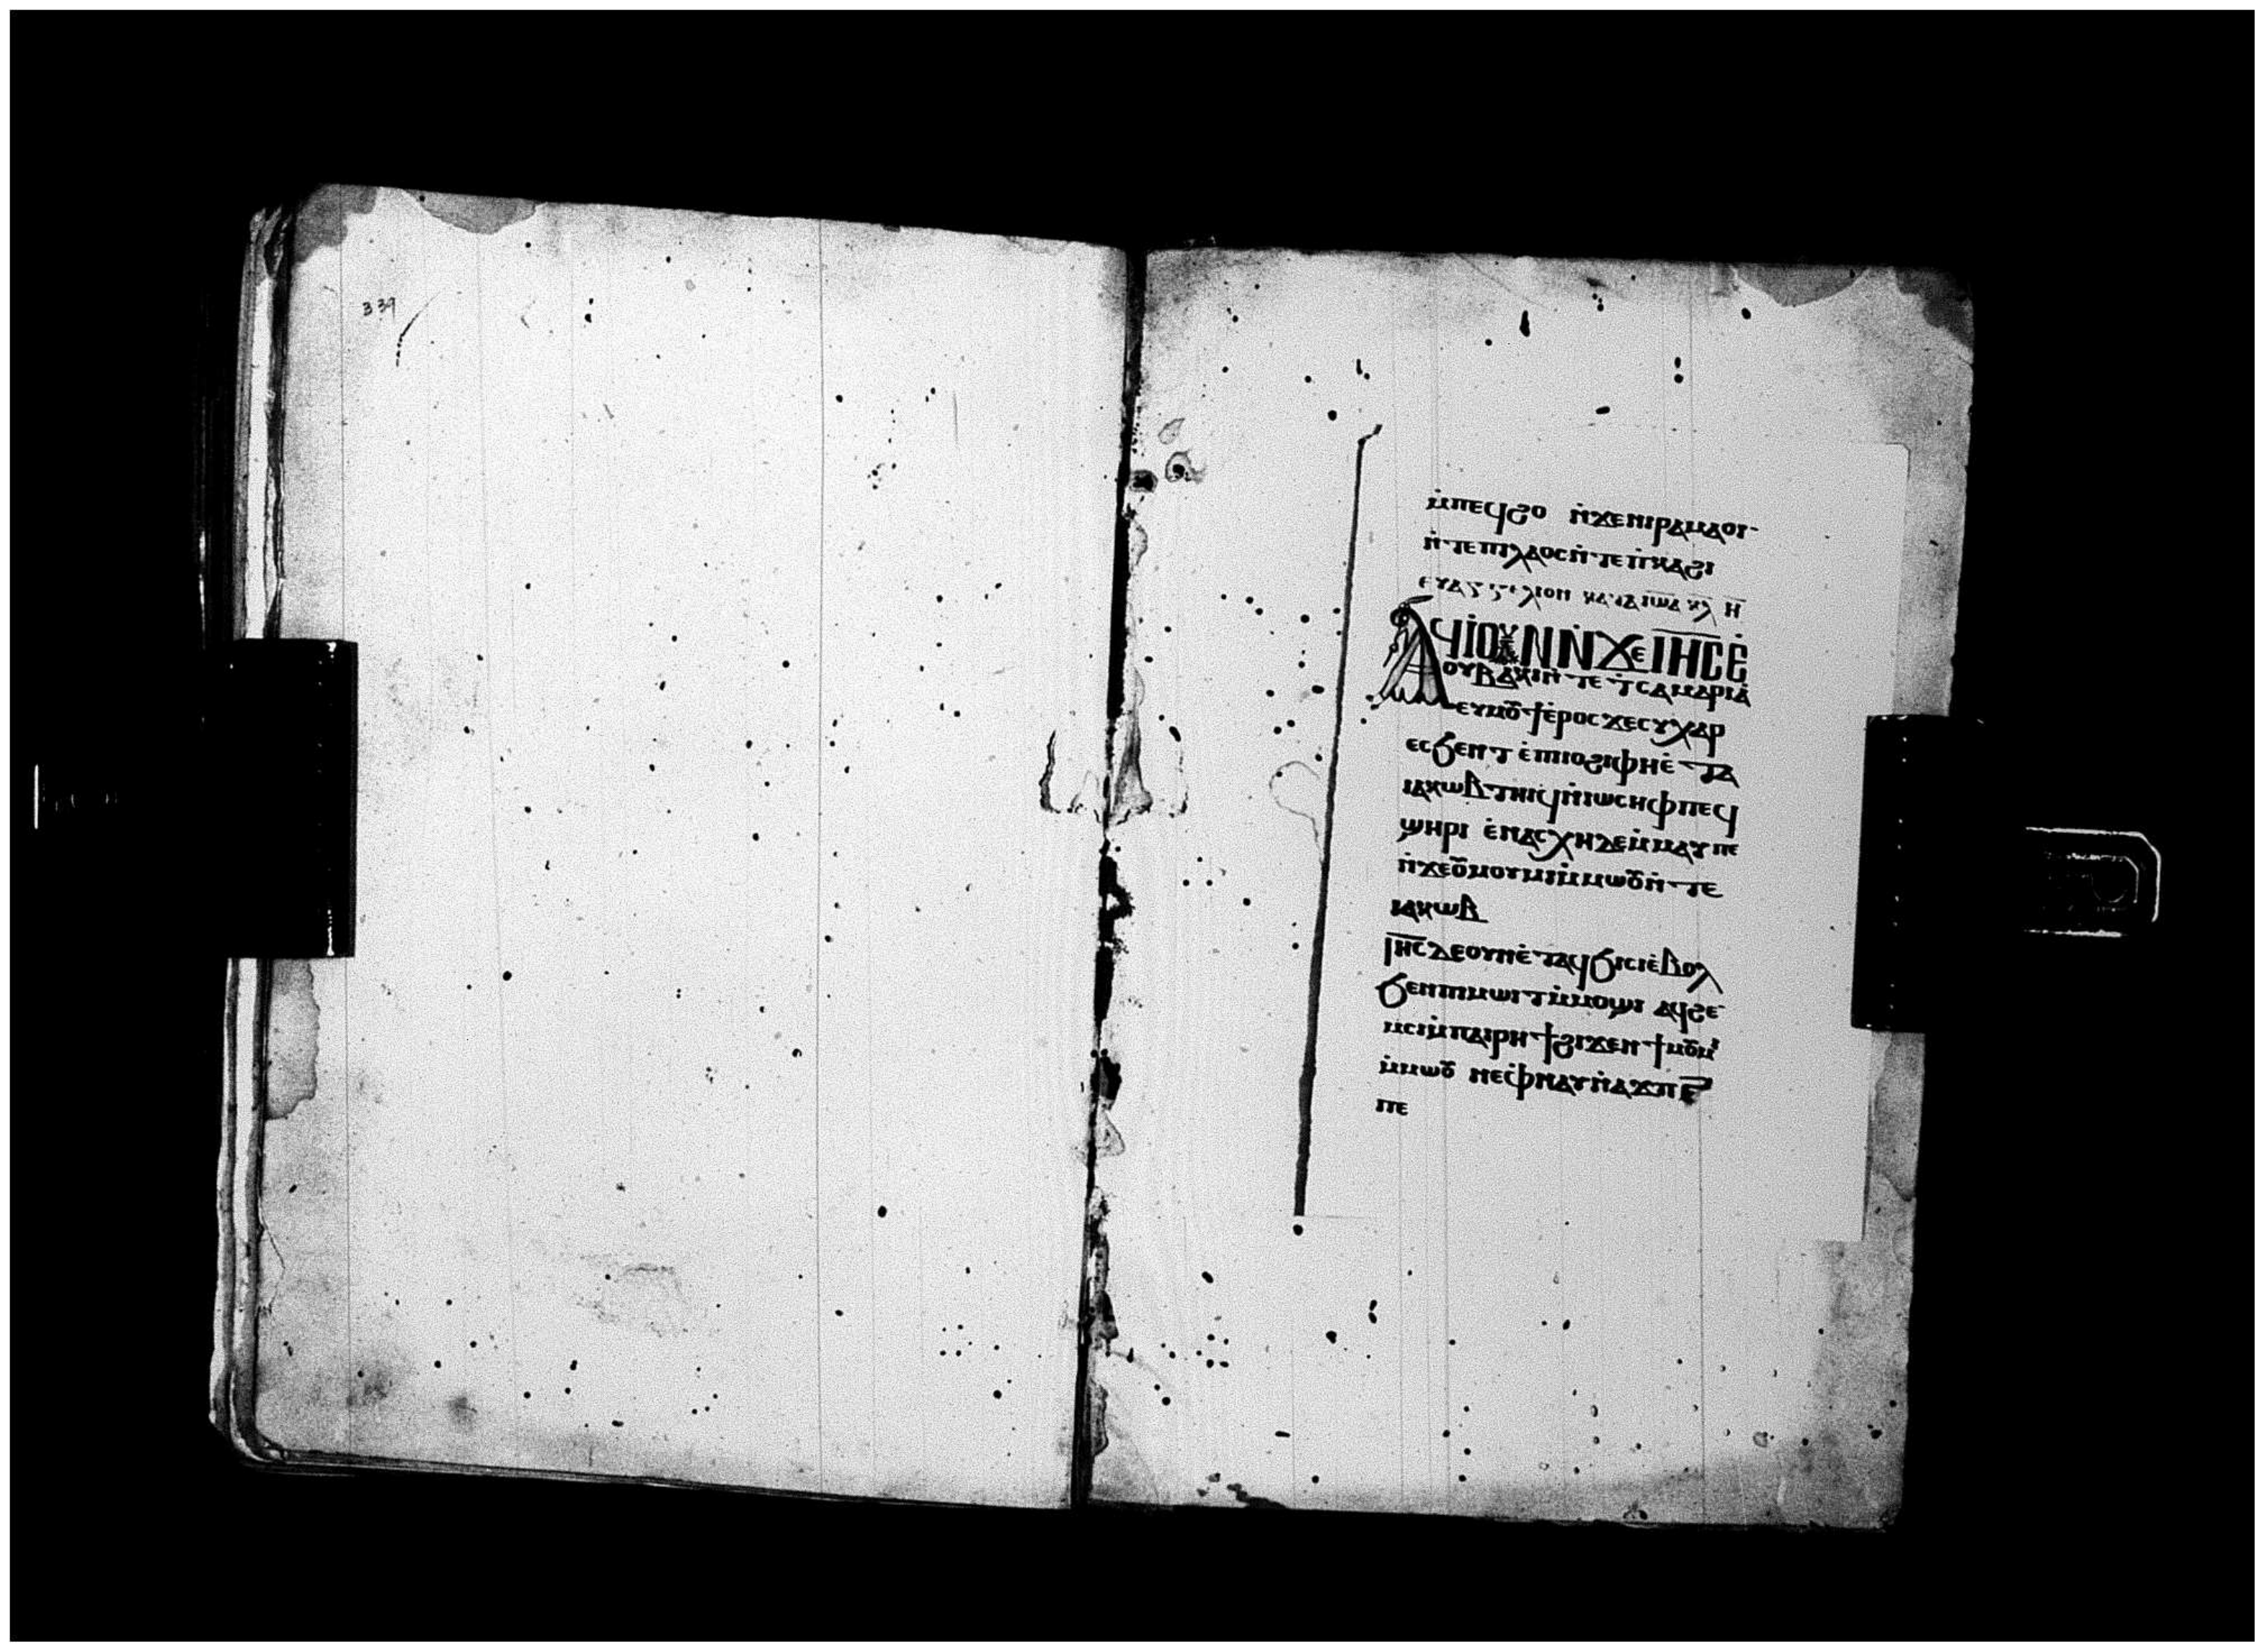 339
ⲙ̇ⲡⲉϥϩⲟ ⲛ̇ϫⲉⲛⲓⲣⲁⲙⲁⲟⲓ·
ⲛ̇ⲧⲉⲡⲓⲗⲁⲟⲥⲛ̇ⲧⲉⲡ̇ⲕⲁϩⲓ
ⲉⲩⲁⲅⲅⲉⲗⲓⲟⲛ ⲕⲁⲧⲁ
Ⲁϥⲓ̇ⲟⲩⲛ ⲛ̇ϫⲉⲓⲏⲥ ⲉ̇
ⲟⲩⲃⲁⲕⲓⲛ̇ⲧⲉ ϯⲥⲁⲙⲁⲣⲓⲁ̇
ⲉⲩⲙⲟⲩϯⲉ̇ⲣⲟⲥ ϫⲉⲥⲩⲭⲁⲣ
ⲉⲥϧⲉⲛⲧ ⲉ̇ⲡⲓⲓⲟϩⲓ ⲫⲏⲉ̇ⲧⲁ
ⲓⲁⲕⲱⲃ ⲧⲏⲓϥⲛ̇ⲓⲱⲥⲏⲫ ⲡⲉϥ
ϣⲏⲣⲓ ⲉ̇ⲛⲁⲥⲭⲏ ⲇⲉⲙ̇ⲙⲁⲩ ⲡⲉ
ⲛ̇ϫⲉⲟⲩⲙⲟⲩⲙⲓⲙ̇ⲙⲱⲟⲩⲛ̇ⲧⲉ
ⲓⲁⲕⲱⲃ
Ⲓⲏⲥ ⲇⲉⲟⲩⲛⲉ̇ⲧⲁϥϧⲓⲥⲓⲉ̇ⲃⲟⲗ
ϧⲉⲛⲡⲓⲙⲱⲓⲧⲙ̇ⲙⲟϣⲓ ⲁϥϩⲉ
ⲙⲥⲓⲙ̇ⲡⲁⲓⲣⲏϯϩⲓϫⲉⲛϯⲙⲟⲩⲙⲓ
ⲙ̇ⲙⲱⲟⲩ ⲛⲉⲫⲛⲁⲩⲛ̇ⲁϫⲡ
ⲡⲉ